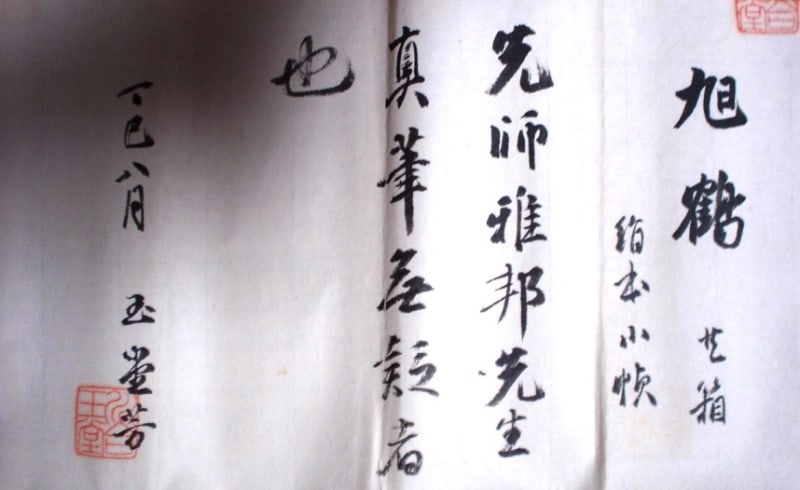 旭鶴 共箱
絹本小幀
先師雅邦先生
真筆無疑者
也
丁巳八月 玉堂芳